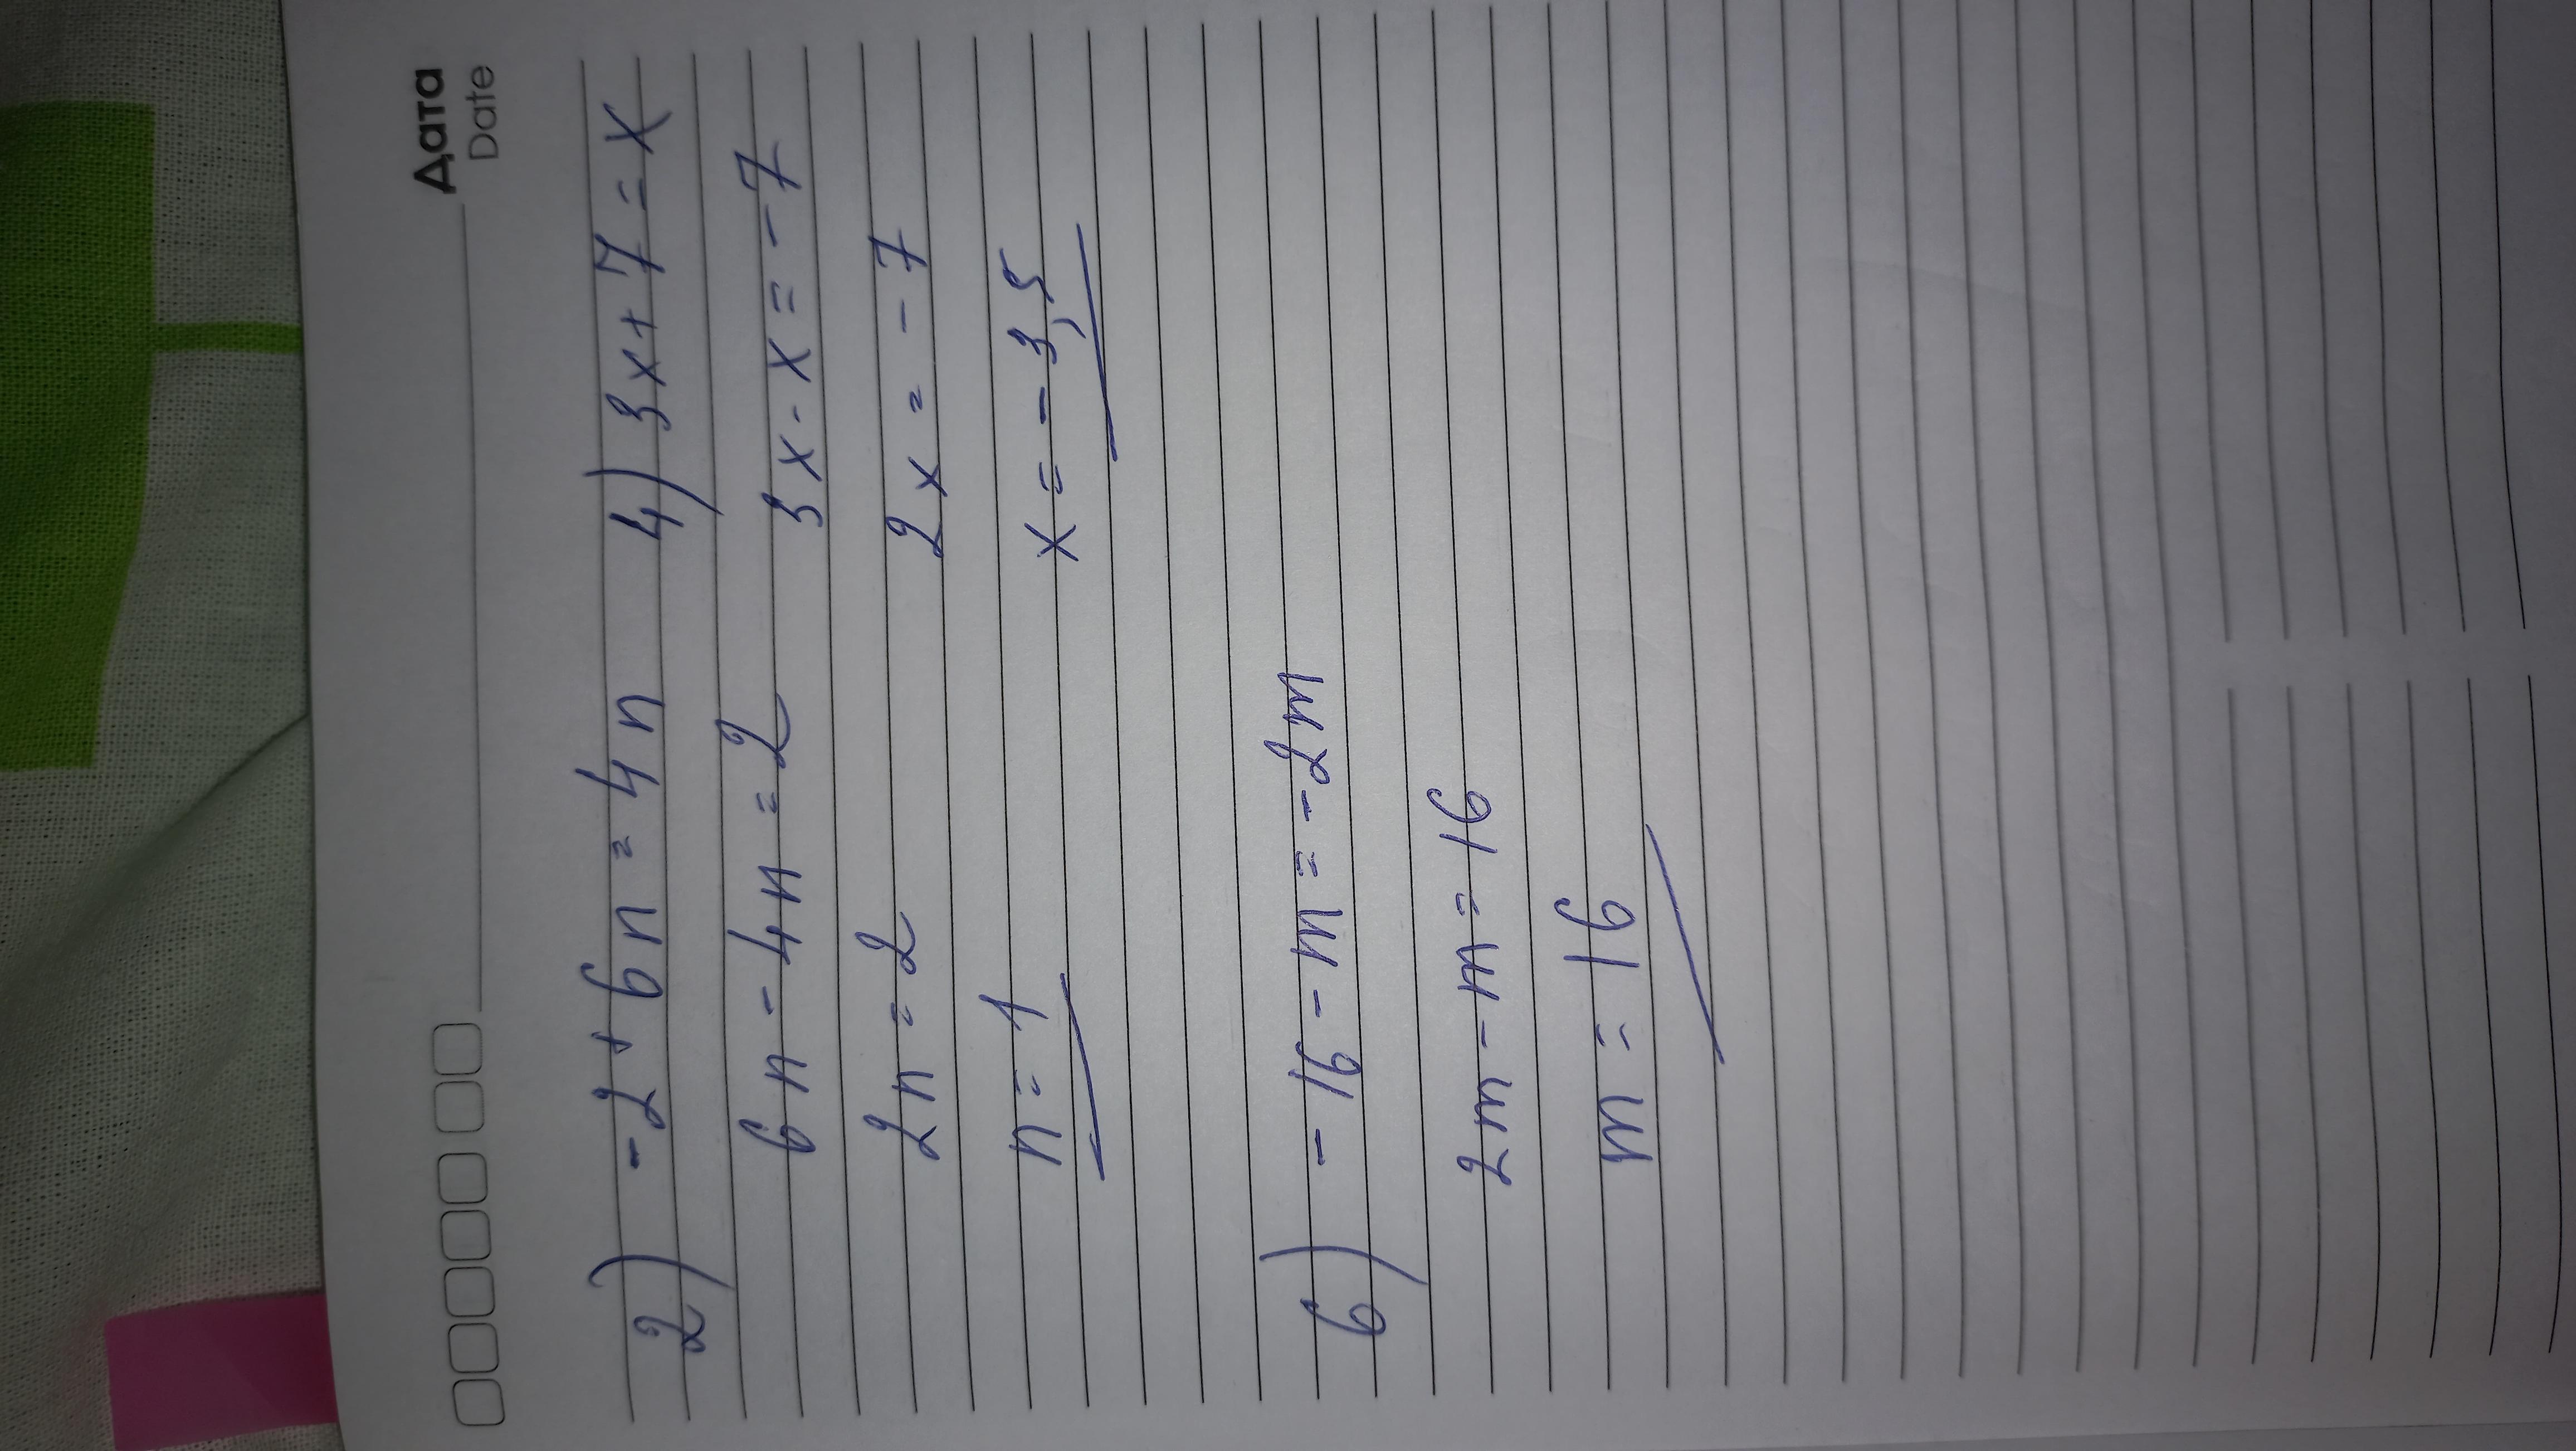 Дата
Date
2) -2+6n=4n 4) 3x+7=x
6n-4n=2 3x-x=-7
2n=2 2x=-7
n=1 x=-3,5
6) -16-m=-2m
2m-m=16
m=16